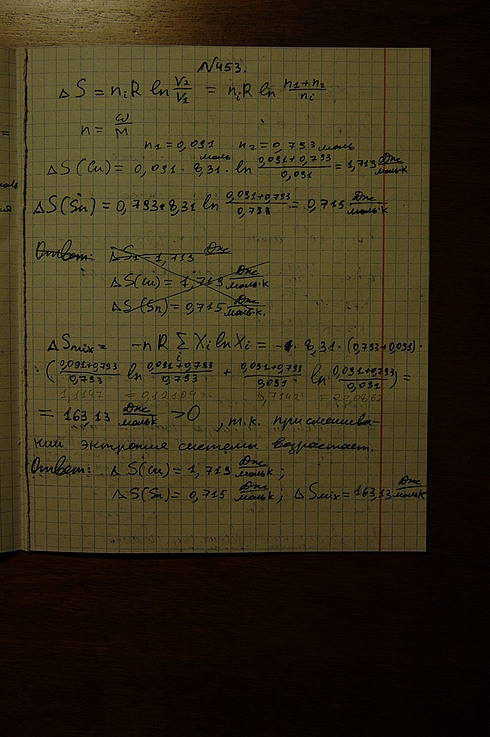 N453.
ΔS = nᵢR ln V₂/V₁ = nᵢR ln (n₁+n₂)/nᵢ
n = ω/M
n₁=0,091 моль n₂=0,793 моль
ΔS(Cu) = 0,091 · 8,31 · ln (0,091+0,793)/0,091 = 1,719 Дж/моль·К
ΔS(Sn) = 0,793·8,31 ln (0,091+0,793)/0,793 = 0,715 Дж/моль·К
Ответ: ΔS₁ = 1,719 Дж
ΔS(Cu) = 1,719 Дж/моль·К
ΔS(Sn) = 0,715 Дж/моль·К.
ΔSmix = -nR Σᵢ Xᵢ ln Xᵢ = - 8,31 · (0,793+0,091) ·
· ((0,091+0,793)/0,793 ln (0,091+0,793)/0,793 + (0,091+0,793)/0,091 ln (0,091+0,793)/0,091) =
= 163,13 Дж/моль·К >0 , т.к. при смешива-
нии энтропия системы возрастает.
Ответ: ΔS(Cu) = 1,719 Дж/моль·К ;
ΔS(Sn) = 0,715 Дж/моль·К ; ΔSmix = 163,13 Дж/моль·К